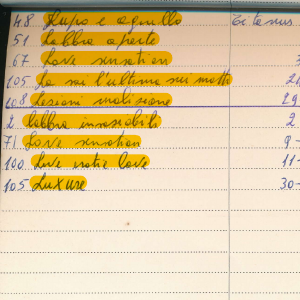 48 Lupo e agnello
51 Labbra aperte
67 Love sensation 3
105 La sai l'ultima sui matti 2
108 Lezioni maliziose 29
2 Labbra insaziabili 2
71 Love sensation 9
100 Live notic love 11-
105 Luxure 30-